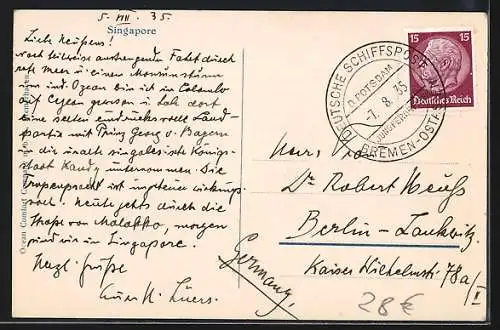 5. VIII. 35.
Singapore
Liebe Neußens!
Nach teilweise anstrengender Fahrt durch
rote Meer und einem Monsunsturm
im ind. Ozean bin ich in Colombo
auf Ceylon gewesen u. habe dort
eine selten eindrucksvolle Land-
partie mit Prinz Georg v. Bayern
in die uralte singalesische Königs-
stadt Kandy unternommen. Die
Tropenpracht ist wirkungs-
voll. Heute gehts durch die
Straße von Malakka, morgen
sind wir in Singapore.
Herzl. Grüße
Euer H. Lüers.
Germany
DEUTSCHE SCHIFFSPOST
D. POTSDAM
-7. 8. 35
BREMEN-OSTASIEN
15 15
Deutsches Reich
Herrn Prof.
Dr. Robert Neuß
Berlin-Lankwitz
Kaiser Wilhelmstr. 78a/I
28€